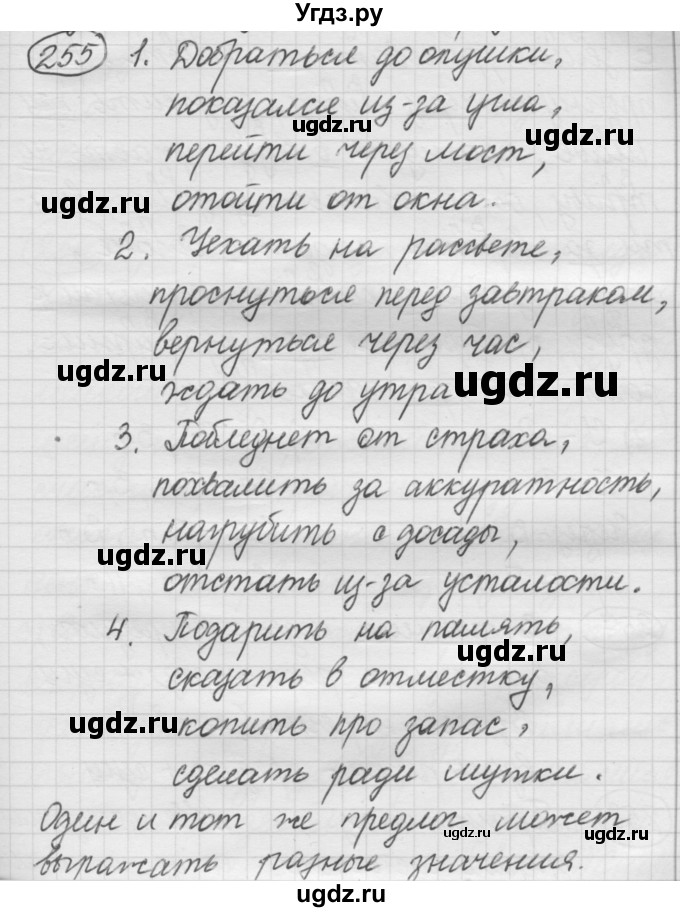 Угдз.ру
255 1. Добраться до опушки,
показался из-за угла,
перейти через мост,
отойти от окна.
2. Уехать на рассвете,
проснуться перед завтраком,
вернуться через час,
ждать до утра
3. Побледнет от страха,
похвалить за аккуратность,
нагрубить с досады,
отстать из-за усталости.
4. Подарить на память,
сказать в отместку,
копить про запас,
сделать ради шутки.
Один и тот же предлог может
выражать разные значения.
ugdz.ru
ugdz.ru
ugdz.ru
ugdz.ru
ugdz.ru
ugdz.ru
ugdz.ru
ugdz.ru
ugdz.ru
ugdz.ru
ugdz.ru